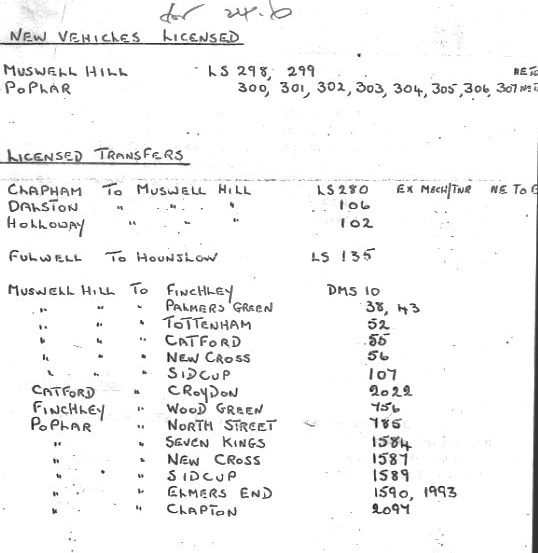 for 24.6
NEW VEHICLES LICENSED
MUSWELL HILL LS 298, 299 NE TO
POPLAR 300, 301, 302, 303, 304, 305, 306, 307 NE T
LICENSED TRANSFERS
CLAPHAM TO MUSWELL HILL LS 280 EX MECH/TNR NE TO E
DALSTON " " " 106
HOLLOWAY " " " 102
FULWELL TO HOUNSLOW LS 135
MUSWELL HILL TO FINCHLEY DMS 10
" " " PALMERS GREEN 38, 43
" " " TOTTENHAM 52
" " " CATFORD 55
" " " NEW CROSS 56
" " " SIDCUP 107
CATFORD " CROYDON 2022
FINCHLEY " WOOD GREEN 756
POPLAR " NORTH STREET 785
" " SEVEN KINGS 1584
" " NEW CROSS 1587
" " SIDCUP 1589
" " ELMERS END 1590, 1993
" " CLAPTON 2097